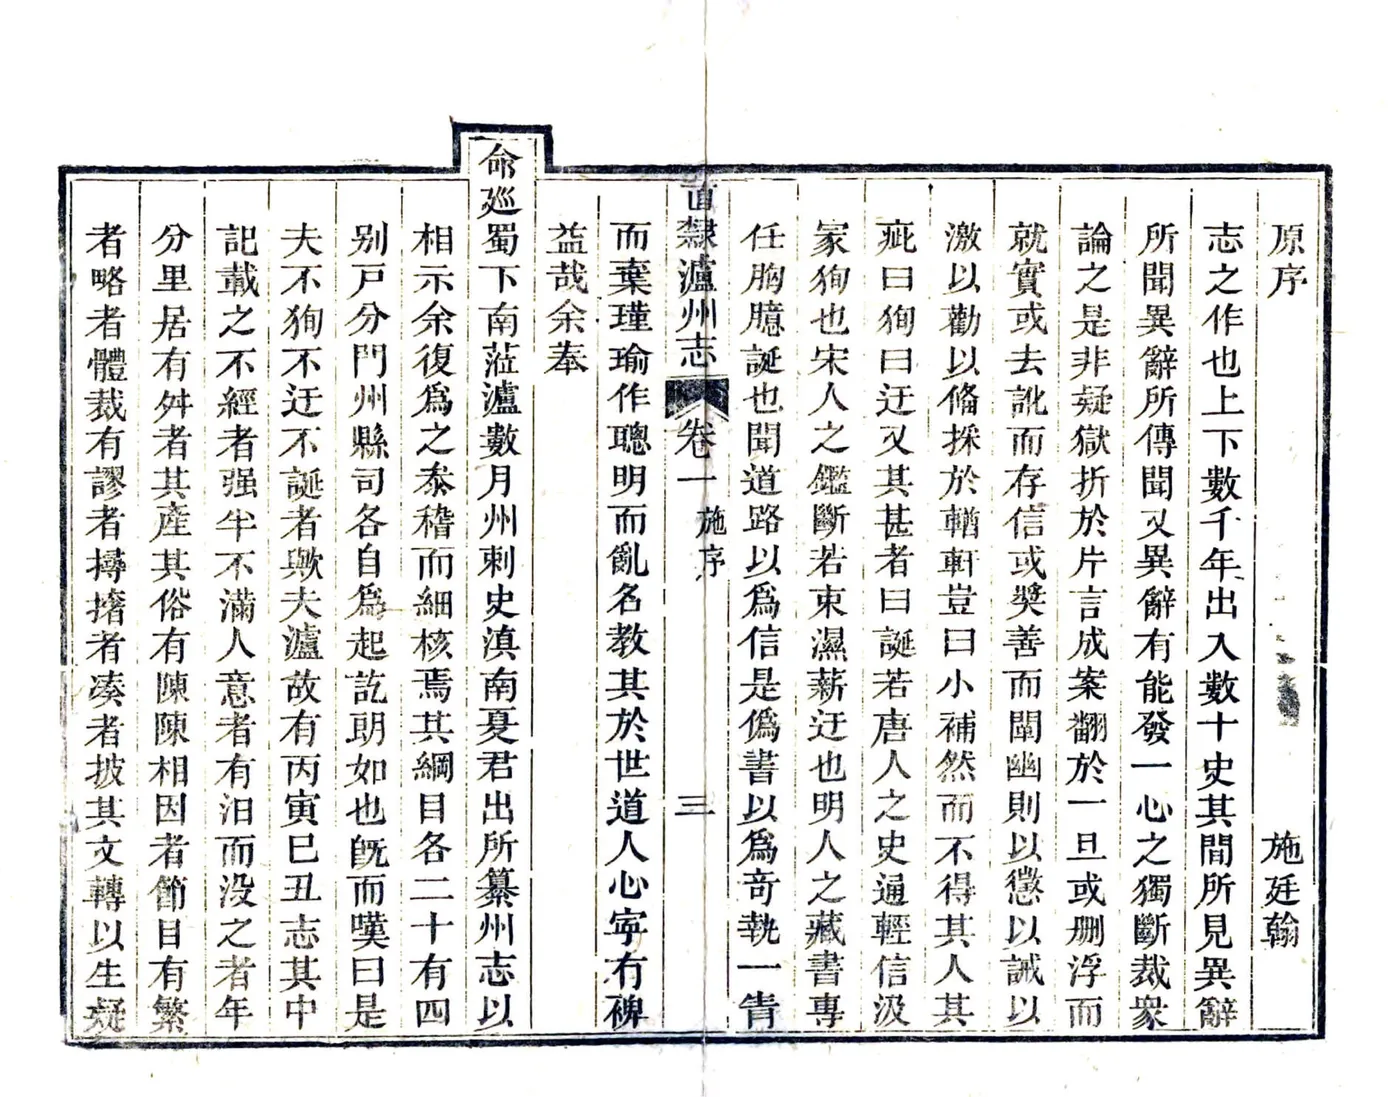 原序 施廷翰
志之作也上下數千年出入數十史其間所見異辭
所聞異辭所傳聞又異辭有能發一心之獨斷裁衆
論之是非疑獄折於片言成案翻於一旦或刪浮而
就實或去訛而存信或奬善而闡幽則以懲以誡以
激以勸以俻採於輶軒豈曰小補然而不得其人其
疵曰狥曰迂又其甚者曰誕若唐人之史通輕信汲
冡狥也宋人之鑑斷若束濕薪迂也明人之藏書專
任胸臆誕也聞道路以爲信是僞書以爲竒執一眚
而棄瑾瑜作聰明而亂名教其於世道人心寕冇裨
直隸瀘州志 卷一 施序 三
益哉余奉
命廵蜀下南蒞瀘數月州刺史滇南夏君出所纂州志以
相示余復爲之叅稽而細核焉其綱目各二十有四
别戸分門州縣司各自爲起訖朗如也旣而嘆曰是
夫不狥不迂不誕者歟夫瀘故有丙寅巳丑志其中
記載之不經者强半不滿人意者有汨而没之者年
分里居有舛者其產其俗有陳陳相因者節目有繁
者略者體裁有謬者撏撦者凑者披其文轉以生疑